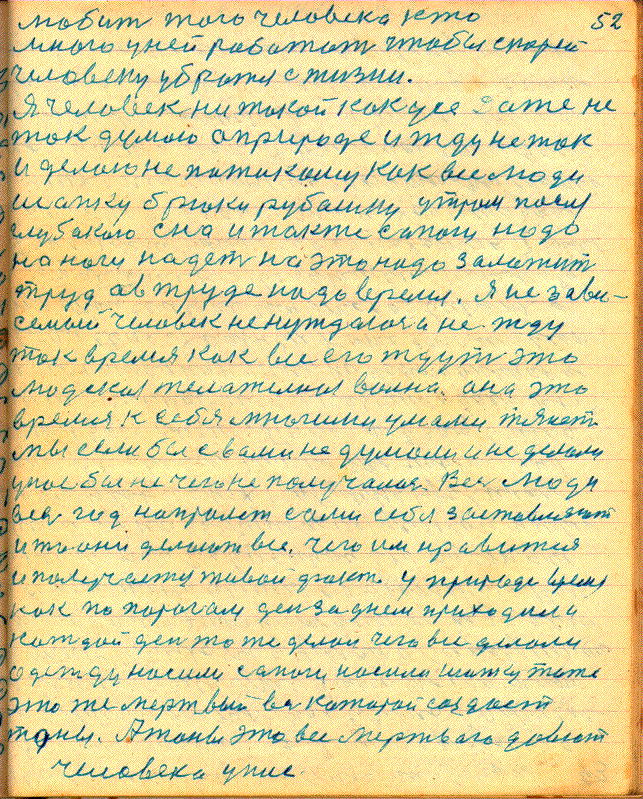 любит того человека кто 52
много у ней работат чтобы скорей
человеку убратя с жизни.
Я человек ни такой как усе даже не
так думаю о природе и жду не так
и делаю не потакому как все люди
шапку брюки рубашку утром посля
глубакого сна и также сапоги надо
на ноги надет на это надо заложит
труд а в труде надо время. Я не зави-
семый человек не нуждаюя а не жду
так время как все его ждут это
людская желателная волна. она это
время к себя мнычими умами тянет.
мы если бы с вами не думали и не делали
у нас бы не чего не получалоя. Вся люди
вед год напролет сами себя заставляют
и то они делают все. чего им нравится
и получается живой факт. у природе время
как по порогам ден за днем приходила
каждой ден то же делай чего все делали
одежду носили сапоги носили шапку тоже
это же мертвый вя каторой создает
тоны. А тоны это все мертваго давют
человека у нас.